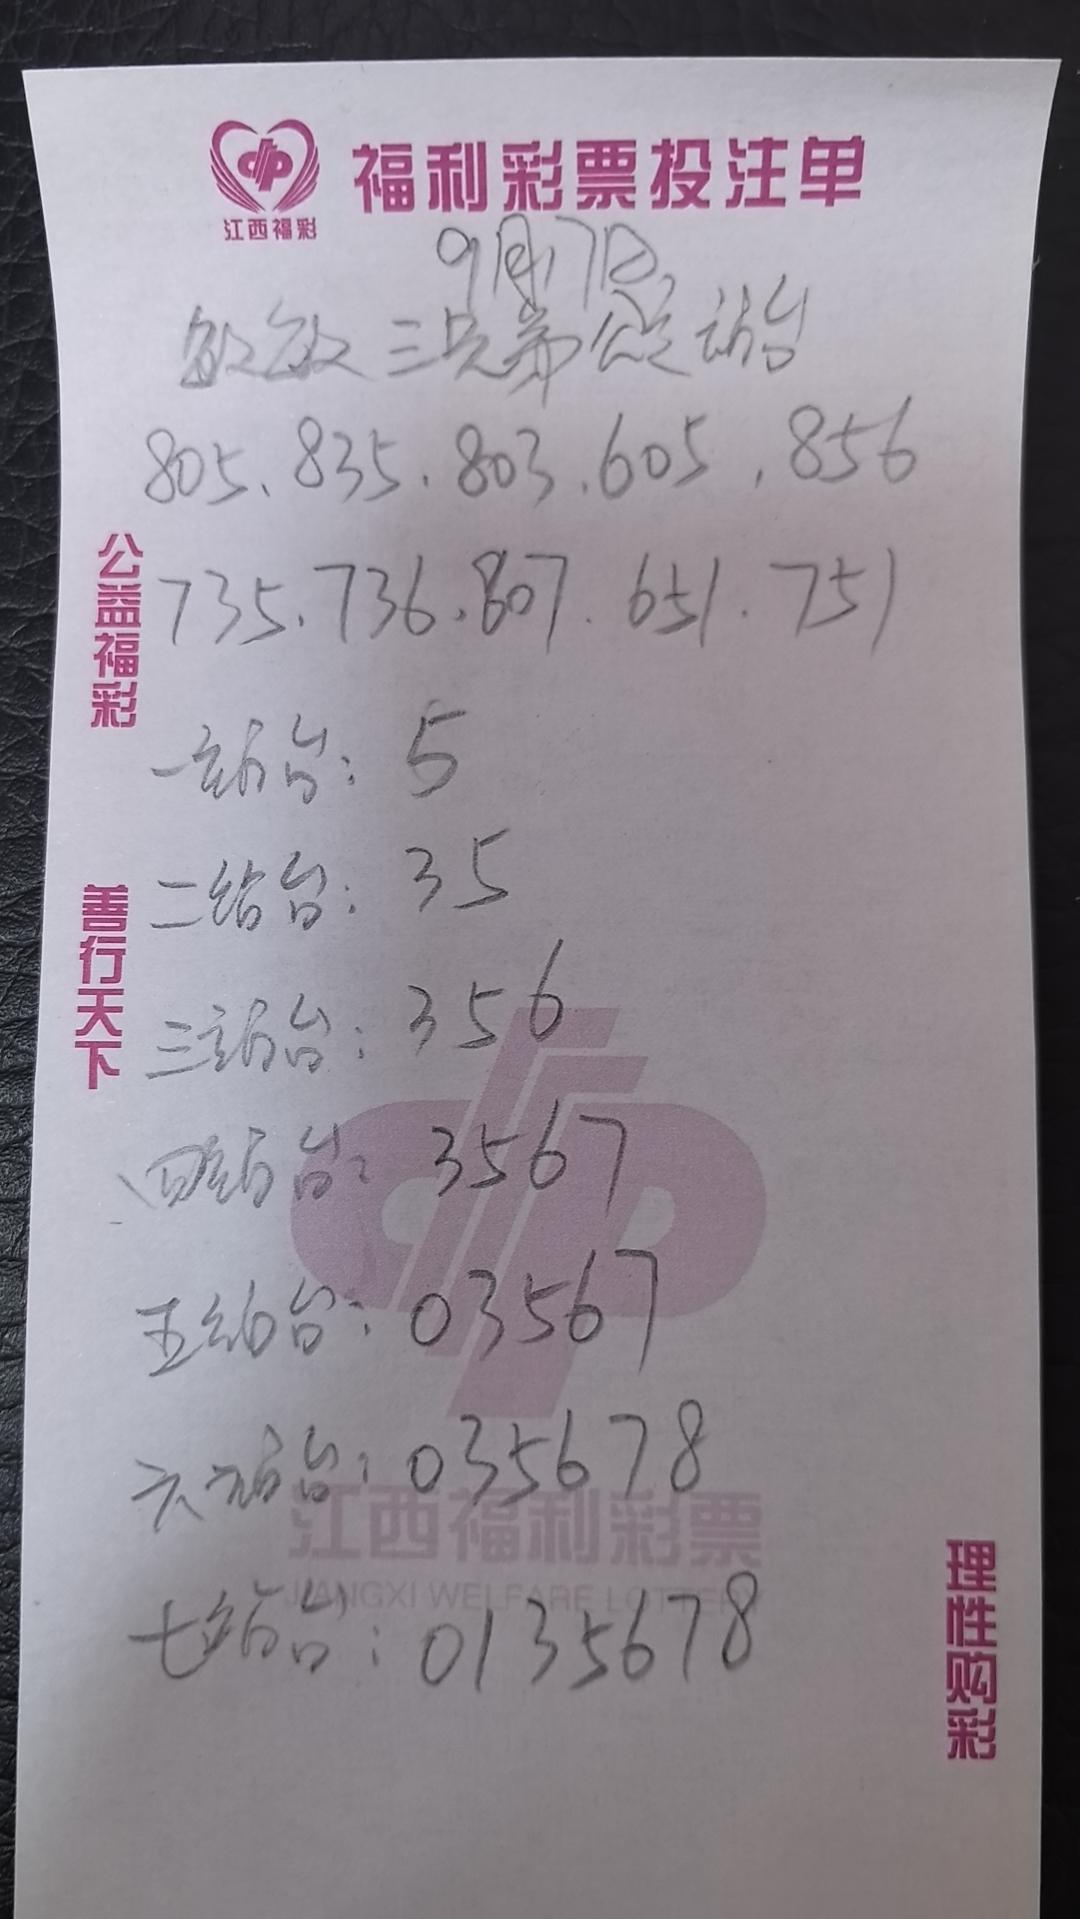 福利彩票投注单
江西福彩
9月17日
敏敏三兄弟公益站台
805、835.803.605.856
735.736.807.651.751
公益福彩
一站台:5
二站台:35
善行天下
三站台:356
四站台:3567
五站台:03567
六站台:035678
江西福利彩票
JIANGXI WELFARE LOTTERY
七站台:0135678
理性购彩